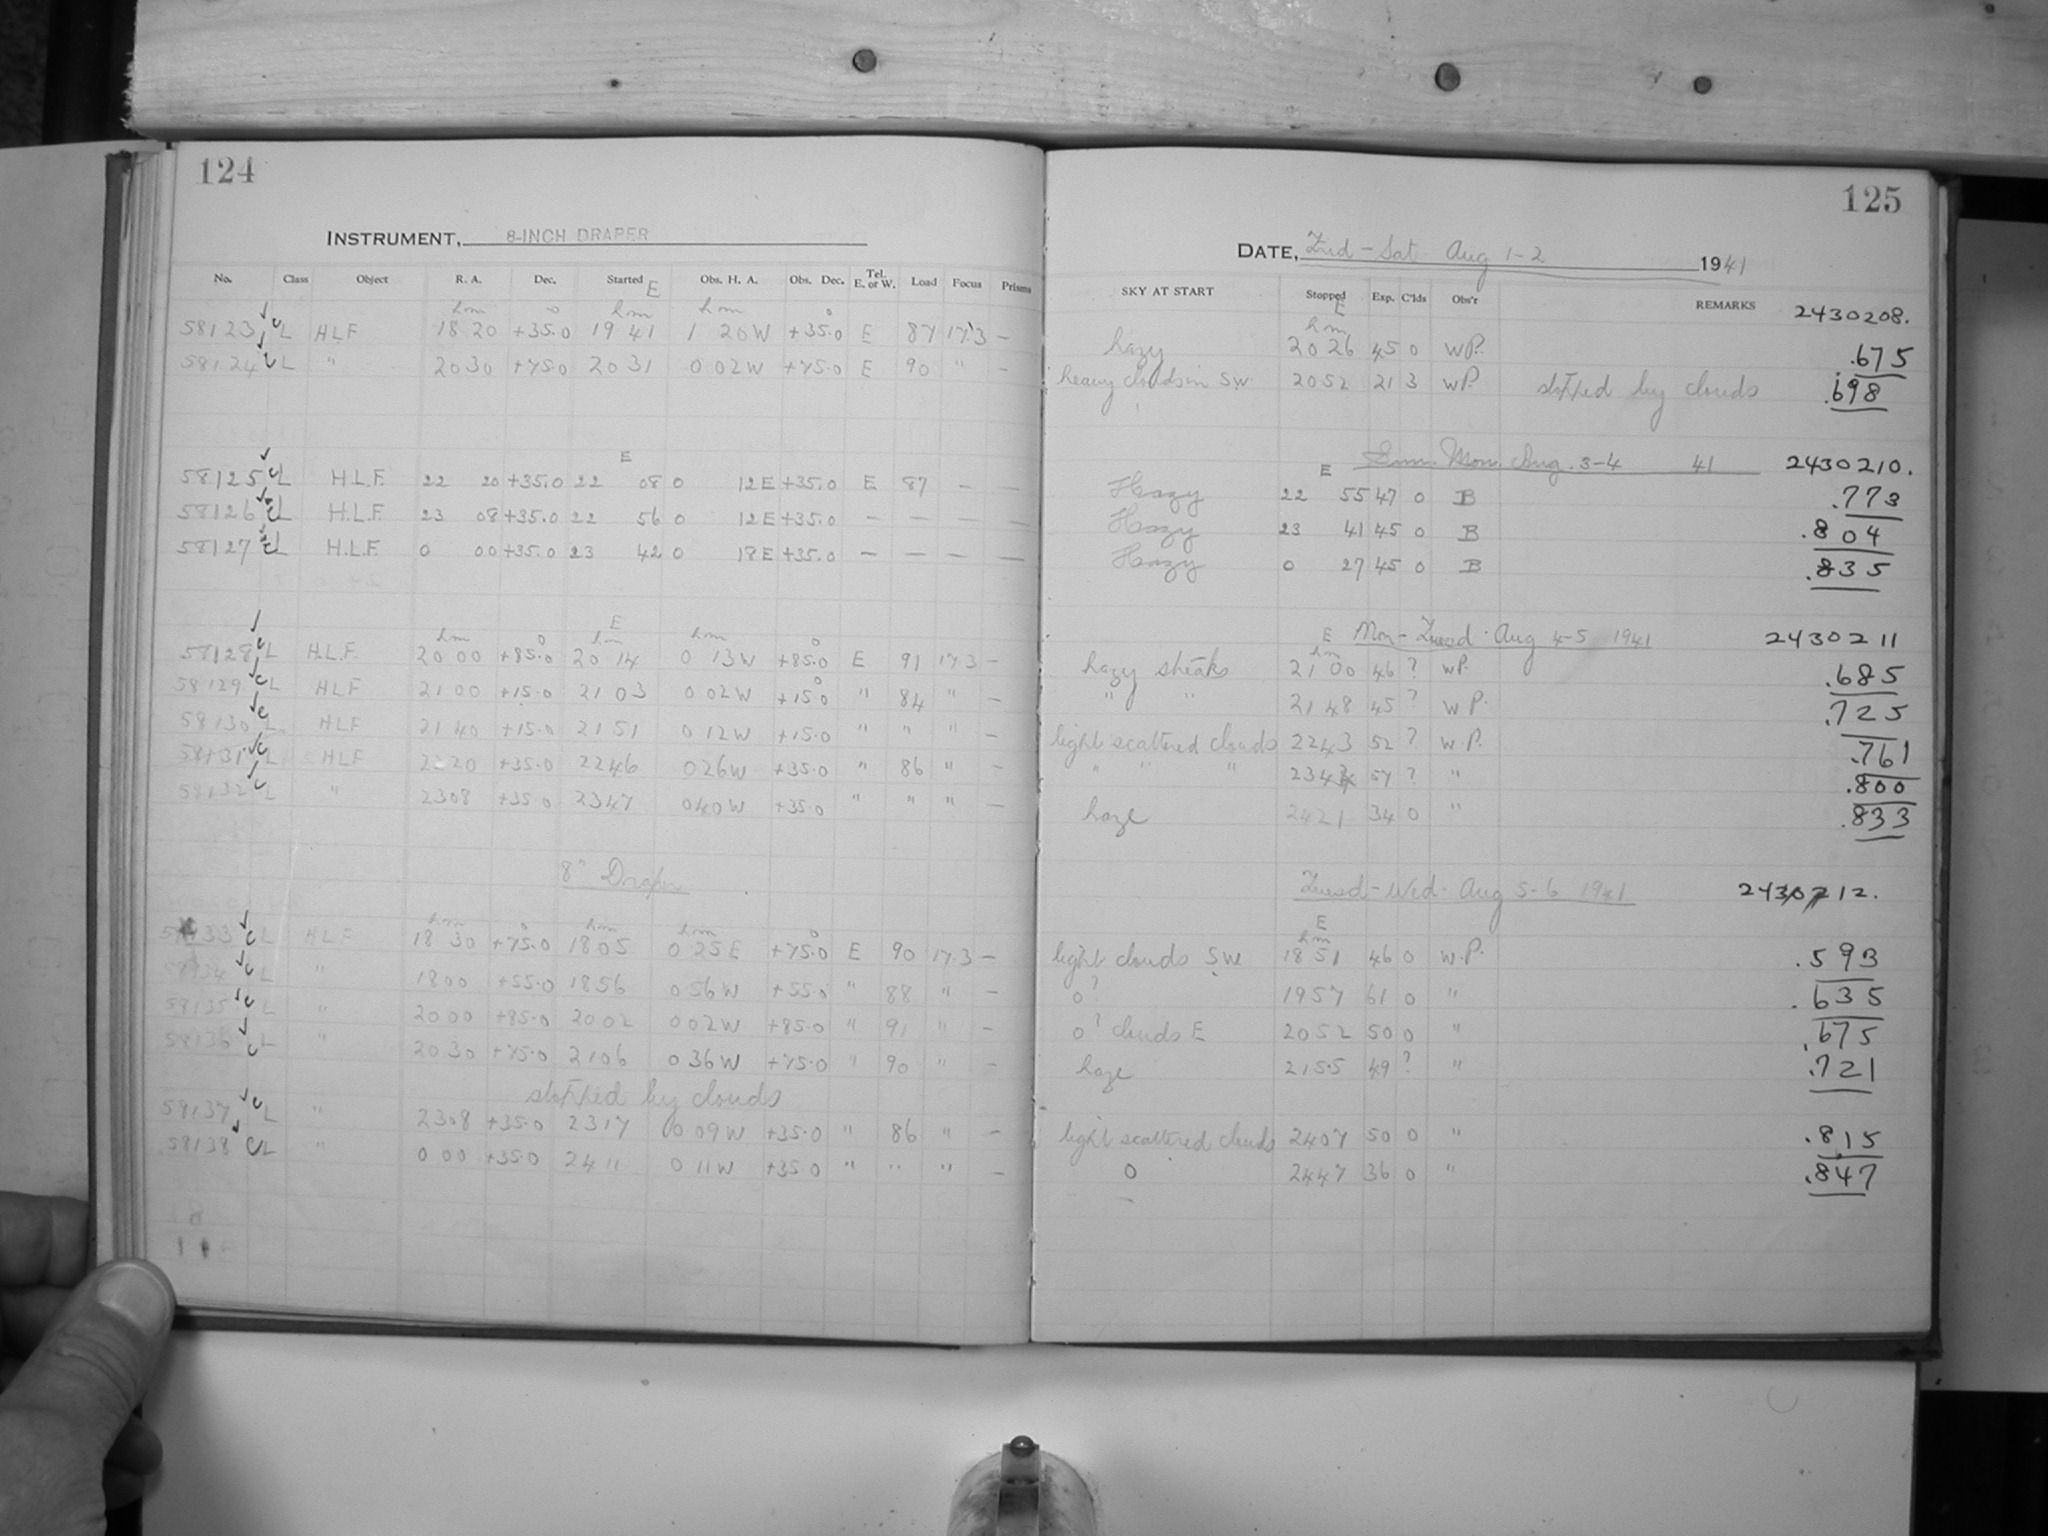 124
INSTRUMENT, 8-INCH DRAPER
No. Class Object R. A. Dec. Started E Obs. H. A. Obs. Dec. Tel. E. or W. Load Focus Prisms
h m o h m h m o
58123 CL HLF 18 20 +35.0 19 41 1 20W +35.0 E 87 17.3 —
58124 CL " 20 30 +75.0 20 31 0 02W +75.0 E 90 " —
E
58125 CL H.L.F. 22 20 +35.0 22 08 0 12E +35.0 E 87 — —
58126 CL H.L.F. 23 08 +35.0 22 56 0 12E +35.0 — — — —
58127 CL H.L.F. 0 00 +35.0 23 42 0 18E +35.0 — — — —
E
h m o h m h m o
58128 CL H.L.F. 20 00 +85.0 20 14 0 13W +85.0 E 91 17.3 —
58129 CL HLF 21 00 +15.0 21 03 0 02W +15.0 " 84 " —
58130 CL HLF 21 40 +15.0 21 51 0 12W +15.0 " " " —
58131 CL HLF 22 20 +35.0 22 46 0 26W +35.0 " 86 " —
58132 CL " 23 08 +35.0 23 47 0 40W +35.0 " " " —
8" Draper
h m o h m h m o
58133 CL HLF 18 30 +75.0 18 05 0 25E +75.0 E 90 17.3 —
58134 CL " 18 00 +55.0 18 56 0 56W +55.0 " 88 " —
58135 CL " 20 00 +85.0 20 02 0 02W +85.0 " 91 " —
58136 CL " 20 30 +75.0 21 06 0 36W +75.0 " 90 " —
stopped by clouds
58137 CL " 23 08 +35.0 23 17 0 09W +35.0 " 86 " —
58138 CL " 0 00 +35.0 24 11 0 11W +35.0 " " " —
125
DATE, Frid - Sat Aug 1-2 1941
SKY AT START Stopped E Exp. C'lds Obs'r REMARKS 2430208.
h m
hazy 20 26 45 0 W.P. .675
heavy clouds in S.W. 20 52 21 3 W.P. stopped by clouds .698
E Sun. Mon. Aug. 3-4 41 2430210.
Hazy 22 55 47 0 B .773
Hazy 23 41 45 0 B .804
Hazy 0 27 45 0 B .835
E Mon - Tuesd. Aug 4-5 1941 2430211
h m
hazy streaks 21 00 46 ? W.P. .685
" " 21 48 45 ? W.P. .725
light scattered clouds 22 43 52 ? W.P. .761
" " " 23 43 57 ? " .800
haze 24 21 34 0 " .833
Tuesd - Wed. Aug 5-6 1941 2430212.
E
h m
light clouds S.W. 18 51 46 0 W.P. .593
0? 19 57 61 0 " .635
0? clouds E 20 52 50 0 " .675
haze 21 55 49 ? " .721
light scattered clouds 24 07 50 0 " .815
0 24 47 36 0 " .847